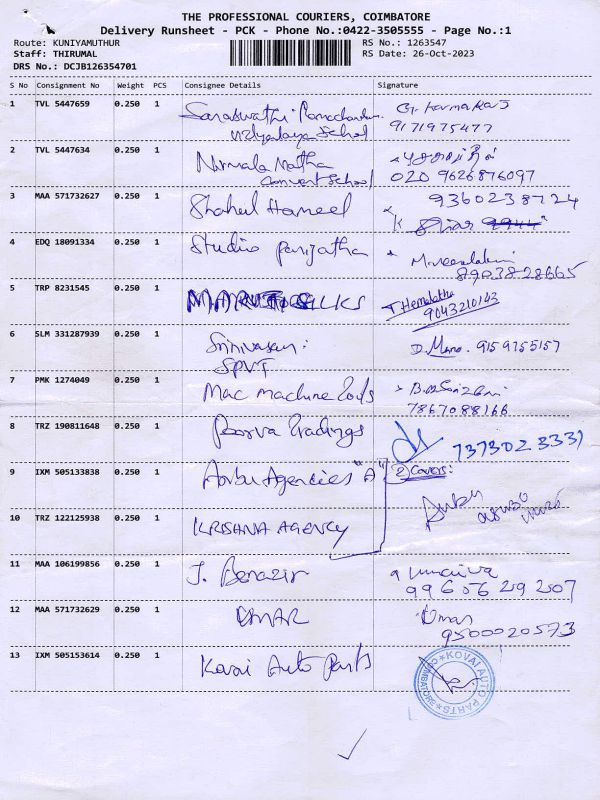 THE PROFESSIONAL COURIERS, COIMBATORE
Delivery Runsheet - PCK - Phone No.:0422-3505555 - Page No.:1
Route: KUNIYAMUTHUR
RS No.: 1263547
Staff: THIRUMAL
RS Date: 26-Oct-2023
DRS No.: DCJB126354701
S No Consignment No Weight PCS Consignee Details Signature
1 TVL 5447659 0.250 1 Saraswathi Ramachandran
Vidyalaya School 9171975477
2 TVL 5447634 0.250 1 Nirmala Matha
Convent School 020 9626876097
3 MAA 571732627 0.250 1 Shahul Hameel 9360238724
4 EDQ 18091334 0.250 1 Studio Parijatha Meenalakmi
8903828665
5 TRP 8231545 0.250 1 MARUTI SILKS T Hemalatha
9043210143
6 SLM 331287939 0.250 1 Srinivasan: D. Mano. 9159755157
SPVT
7 PMK 1274049 0.250 1 Mac machine Tools
7867088166
8 TRZ 190811648 0.250 1 Poorva Tradings 7373023331
9 IXM 505133838 0.250 1 Anbu Agencies "A" 2) Covers:
Anbu
10 TRZ 122125938 0.250 1 KRISHNA AGENCY
11 MAA 106199856 0.250 1 J. Benazir
9965629207
12 MAA 571732629 0.250 1 UMAR Umar
9500020573
13 IXM 505153614 0.250 1 Kovai Auto Parts
KOVAI AUTO PARTS
COIMBATORE